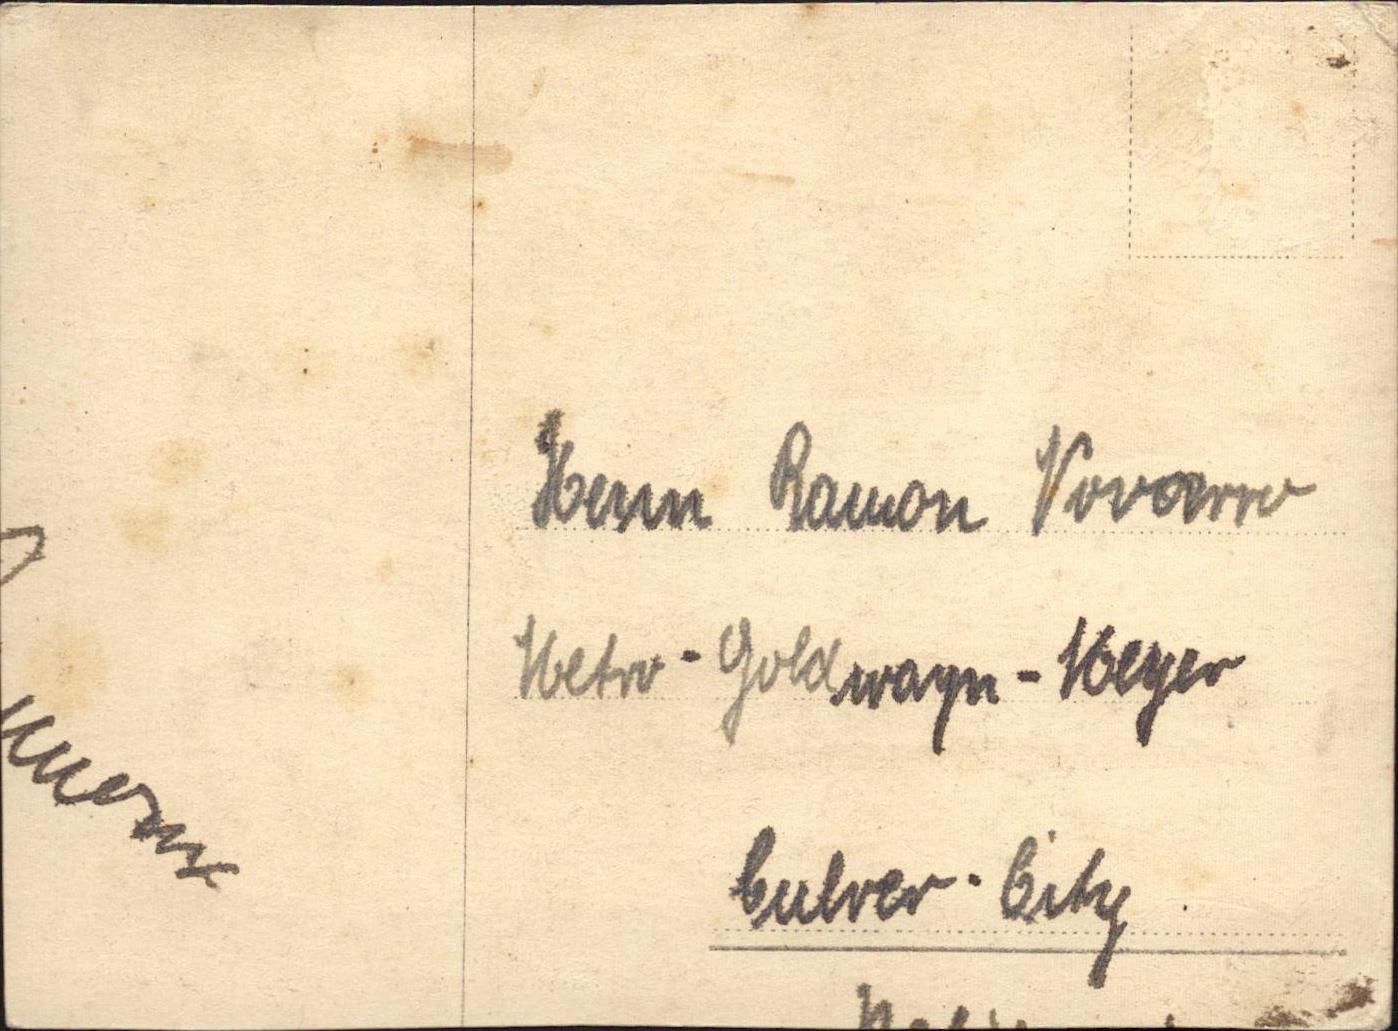 Herrn Ramon Novarro
Metro-Goldwayn-Meyer
Culver-City